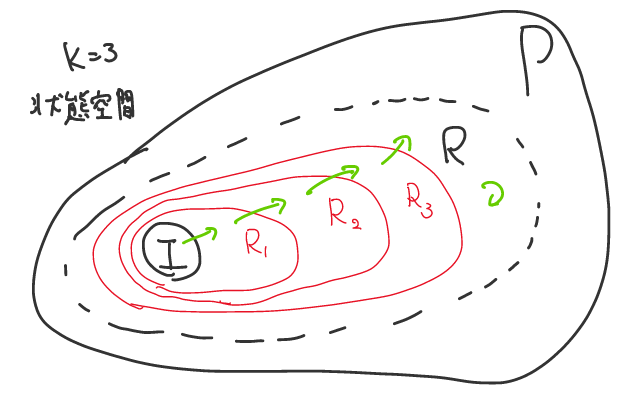 K=3
状態空間
P
R
I
R1
R2
R3